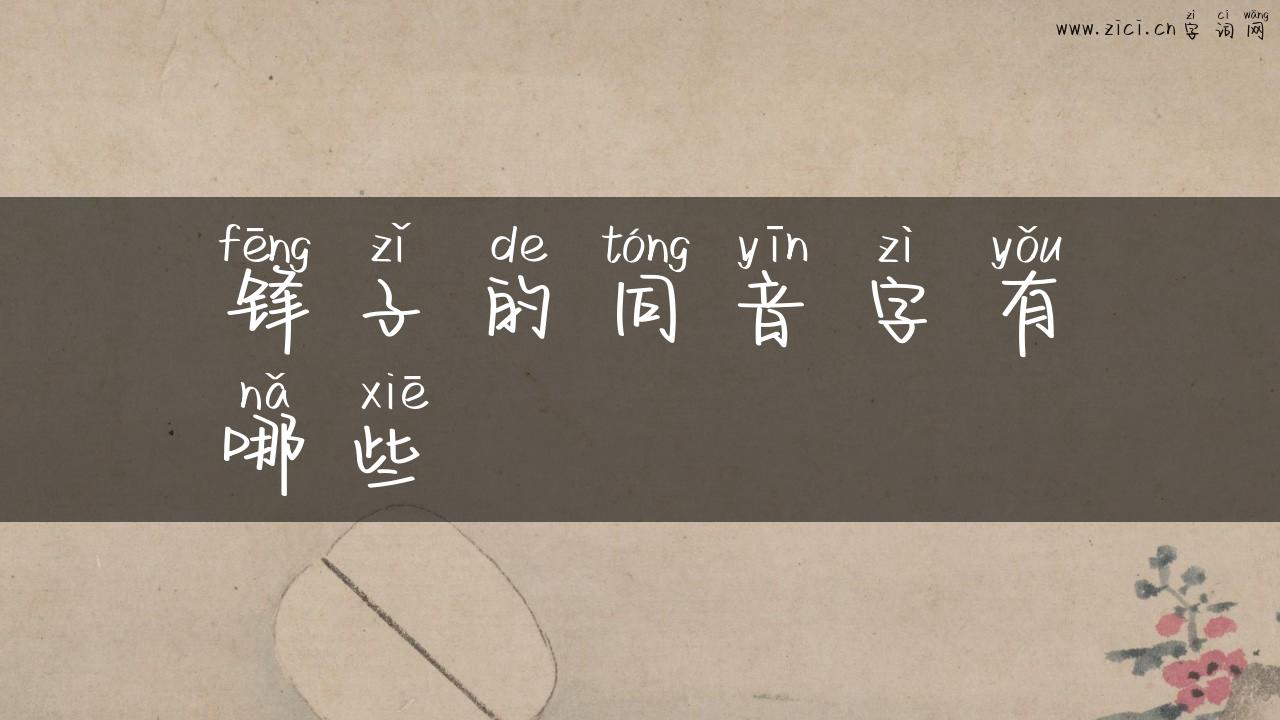 zì cí wǎng
www.zici.cn 字 词 网
fēng zǐ de tóng yīn zì yǒu
锋 子 的 同 音 字 有
nǎ xiē
哪 些